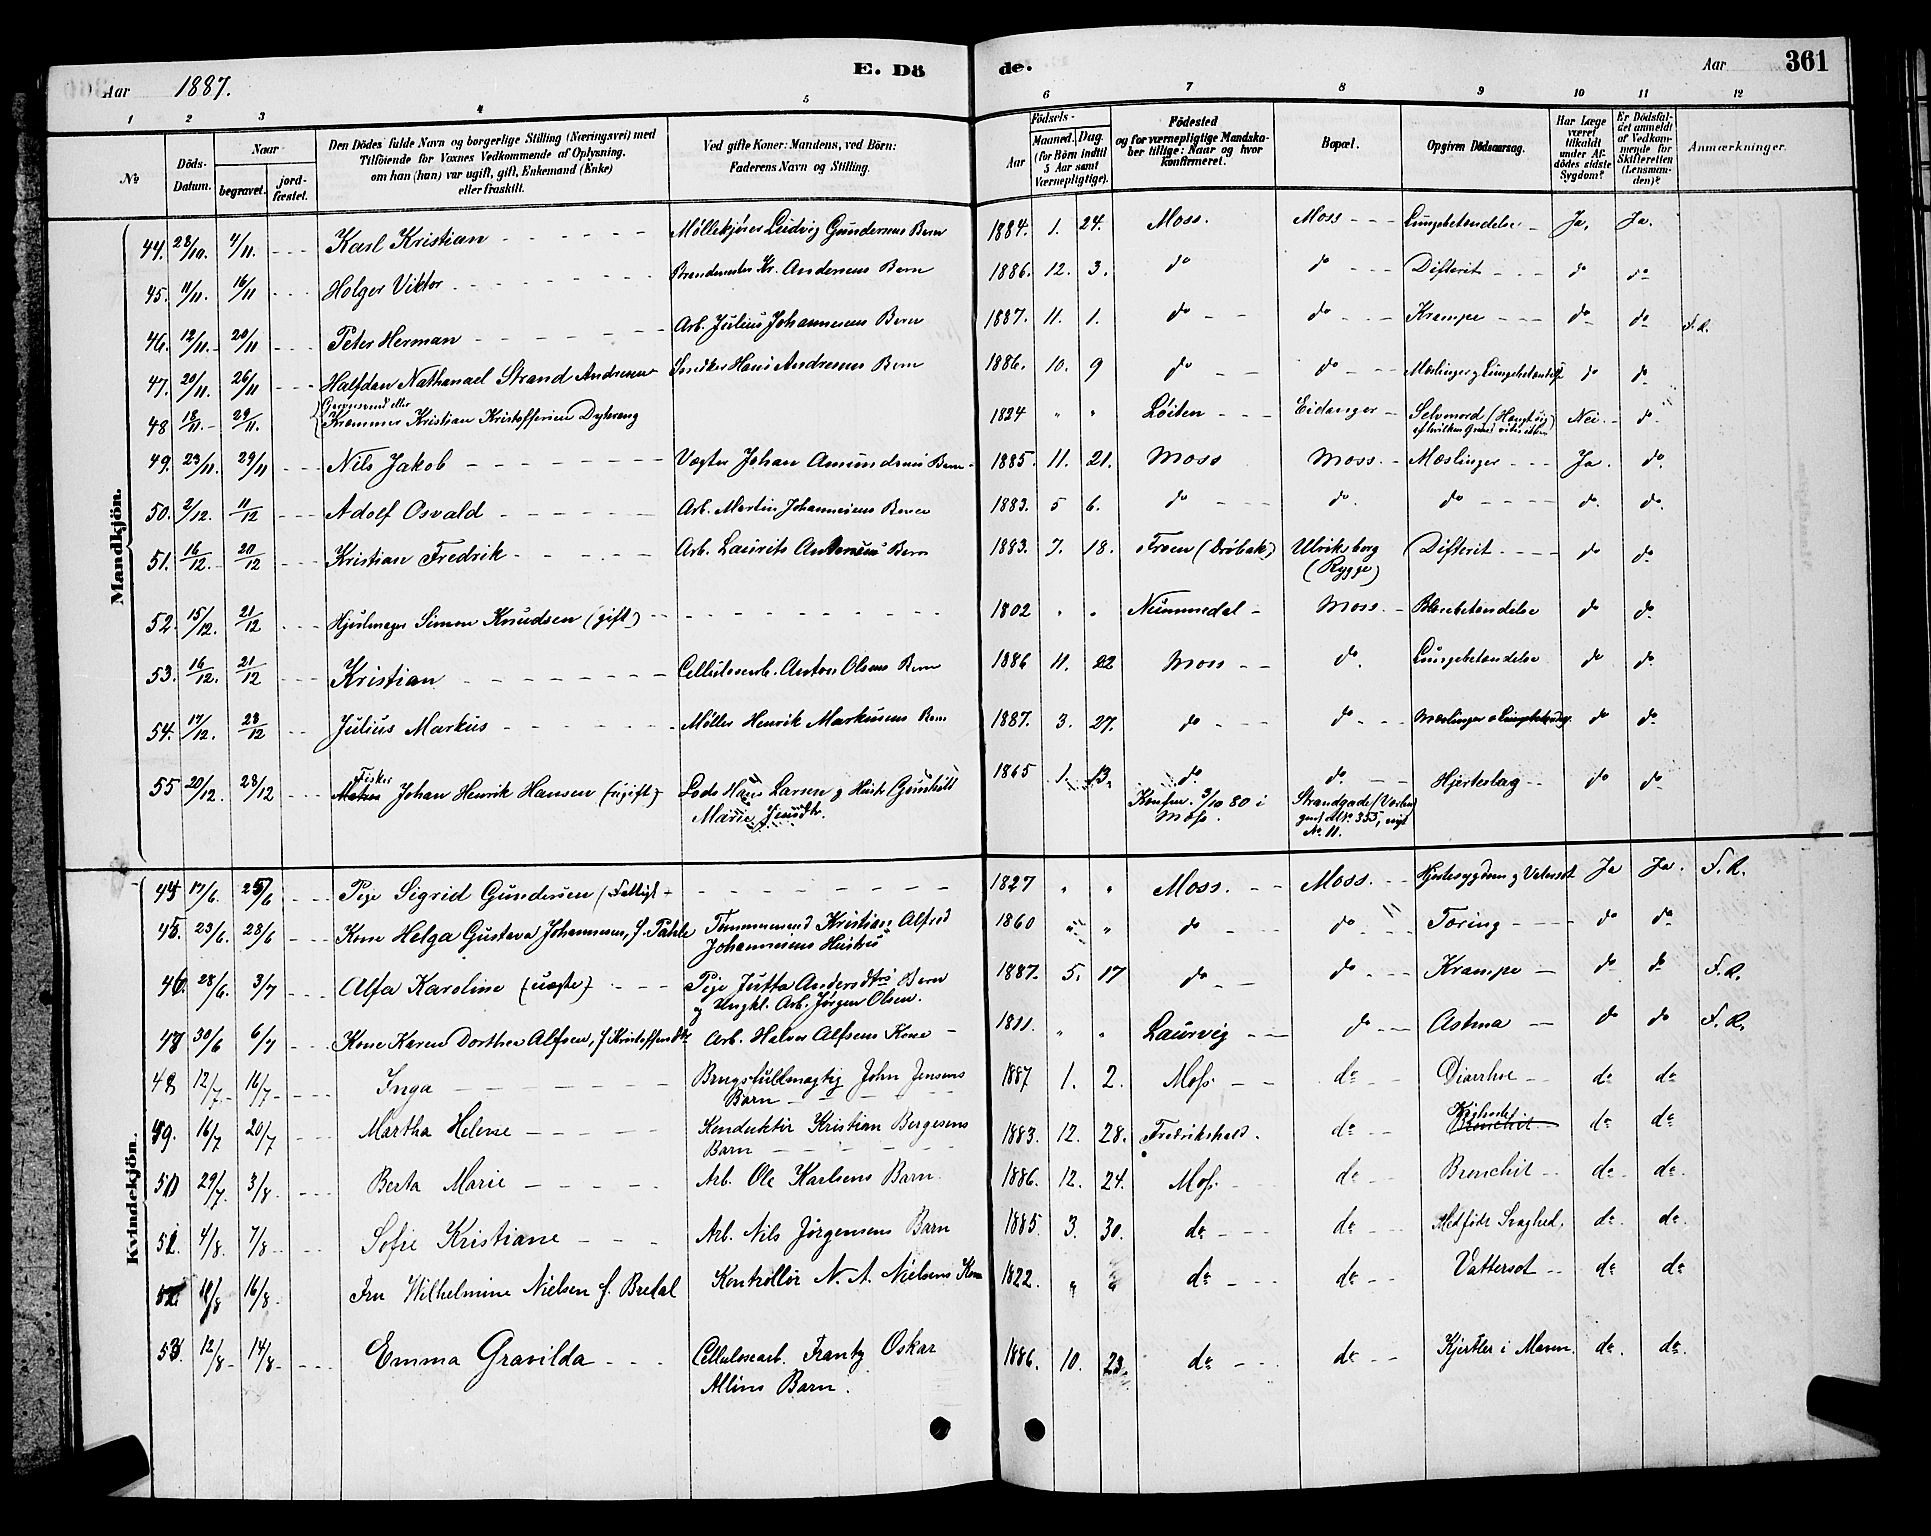 Aar 1887. E. Dö de. Aar 361
1 2 3 4 5 6 7 8 9 10 11 12
No Döds-Datum. Naar begravet. jordfæstet. Den Dödes fulde Navn og borgerlige Stilling (Næringsvei) med Tilföiende for Voxnes Vedkommende af Oplysning, om han (hun) var ugift, gift, Enkemand (Enke) eller fraskilt. Ved gifte Koner: Mandens, ved Börn: Faderens Navn og Stilling. Födsels- Aar Maaned. Dag. (for Börn indtil 5 Aar samt Værnepligtige). Födested og for værnepligtige Mandskaber tillige: Naar og hvor konfirmeret. Bopæl. Opgiven Dödsaarsag. Har Læge været tilkaldt under Afdödes sidste Sygdom? Er Dödsfaldet anmeldt af Vedkommende for Skifteretten (Lensmanden)? Anmærkninger.
Mandkjön.
44. 28/10. 4/11. Karl Kristian Møllekjører Ludvig Gundersens Barn 1884. 1. 24. Moss. Moss Lungebetændelse Ja. Ja.
45. 11/11. 16/11 Holger Viktor Brandmester Kr. Andersens Barn 1886. 12. 3. do do Difterit do do
46. 12/11. 20/11 Peter Herman Arb. Julius Johannesens Barn 1887. 11. 1. do do Krampe do do F.R.
47. 20/11. 26/11 Halfdan Nathanael Strand Andresen Snedker Hans Andresens Barn 1886. 10. 9 do do Mæslinger og Lungebetændelse do do
48 18/11. 29/11. Kræmmer Kristian Kristoffersen Dytereng 1824 " " Löiten Eidanger Selvmord Nei do.
49. 23/11. 29/11 Nils Jakob Vægter Johan Amundsens Barn 1885. 11. 21. Moss Moss. Mæslinger Ja. do.
50. 2/12. 11/12 Adolf Osvald Arb. Martin Johannesens Barn 1883. 5 6. do do. do do. do.
51. 16/12. 20/12 Kristian Fredrik Arb. Laurits Andersens Barn 1883. 7. 18. Froen (Drøbak) Ulriksborg (Rygge) Difterit do do
52. 15/12. 21/12 Hjulmager Simon Knudsen (gift) 1802 " " Nummedal Moss. Blærebetændelse do do
53. 16/12. 21/12 Kristian Cellulosearb. Anton Olsens Barn 1886 11. 22 Moss do. Lungebetændelse do do
54. 17/12. 28/12 Julius Markus Møller Henrik Markusens Barn 1887. 3. 27. do do Mæslinger o Lungebetændelse do do
55 20/12. 28/12 Fisker Johan Henrik Hansen (ugift) Lods Hans Larsen og Hustr Gunhild 1865 1. 13. do. do. Hjerteslag do do
Marie Konfirm. 3/10 80 i Moss. Strandgade No 355, nyt No. 11.
Kvindekjön.
44 17/6. 25/6 Pige Sigrid Gundersen (Fattigl. 1827 " " Moss. Moss. Hjertesygdom og Vatersot Ja Ja. F.R.
45. 23/6. 28/6 Kone Helga Gustava Johannesen, f. Pahle Tømmermand Kristian Alfred Johannesens Hustru 1860 " " do do Tæring do do
46. 28/6. 3/7 Alfa Karoline (uægte) Pige Jutta Andersdtrs Barn og Ungkl. Arb. Jørgen Olsen. 1887. 5. 17 do do Krampe do do F.R.
47 30/6 6/7 Kone Karen Dorthea Alfsen, f Kristoffersdtr Arb. Halvor Alfsens Kone 1811. " " Laurvig do Astma do do F.R.
48 12/7. 16/7 Inga Brugsfuldmægtig John Jensens Barn 1887 1. 2. Moss do Diarrhoe do do
49. 16/7 20/7 Martha Helene Konduktör Kristian Bergesens Barn 1883. 12. 28. Fredrikshald. do Kighoste Bronchit do do
50 29/7. 3/8 Berta Marie Arb. Ole Karlsens Barn. 1886. 12. 24. Moss do Bronchit do. do.
51. 4/8. 7/8 Sofie Kristiane Arb. Nils Jörgensens Barn 1885. 3. 30. do do Medfödt Svaghed, do. do.
52. 10/8 16/8 Fru Wilhelmine Nielsen f. Bredal Kontrollör N. A. Nielsens Kone 1822. " " do do Vattersot do do
53. 12/8 14/8 Emma Gravilda Cellulosearb. Frantz Oskar Allins Barn. 1886. 10. 23 do do Kjertler i Maven. do. do.